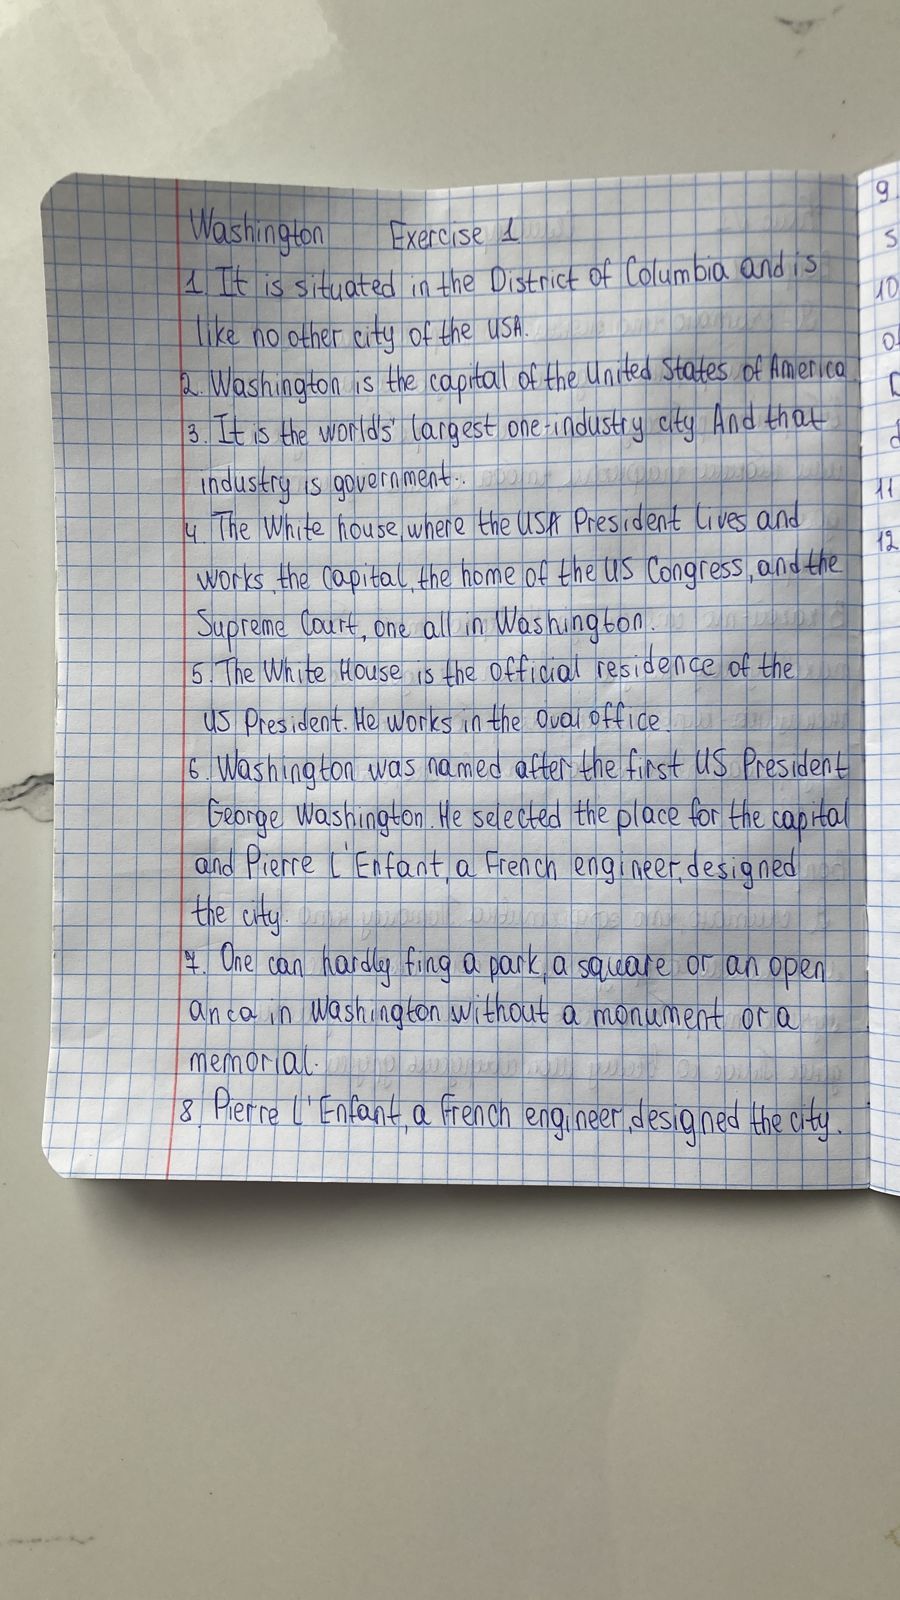 Washington Exercise 1
1. It is situated in the District of Columbia and is
like no other city of the USA.
2. Washington is the capital of the United States of America
3. It is the world's largest one-industry city And that
industry is government.
4. The White house, where the USA President lives and
works, the capital, the home of the US Congress, and the
Supreme Court, one all in Washington.
5. The White House is the official residence of the
US President. He works in the Oval office.
6. Washington was named after the first US President
George Washington. He selected the place for the capital
and Pierre L'Enfant, a French engineer, designed
the city.
7. One can hardly fing a park, a square or an open
anca in Washington without a monument or a
memorial.
8. Pierre L'Enfant, a French engineer, designed the city.
9.
10
11
12